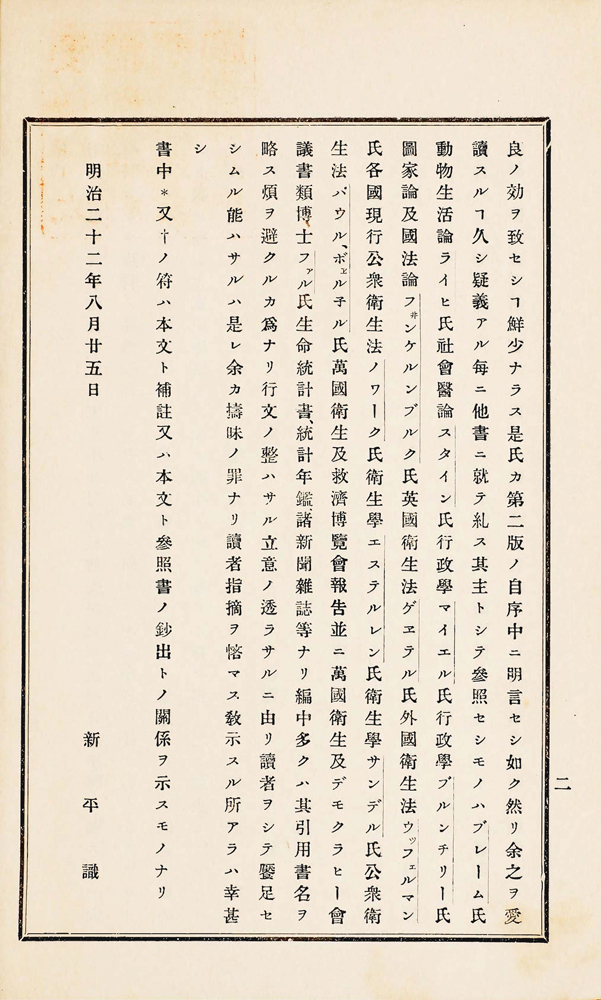 良ノ効ヲ致セシヿ鮮少ナラス是氏カ第二版ノ自序中ニ明言セシ如ク然リ余之ヲ愛
讀スルヿ久シ疑義アル每ニ他書ニ就テ糺ス其主トシテ參照セシモノハブレーム氏
動物生活論ライヒ氏社會醫論スタイン氏行政學マイエル氏行政學ブルンチリー氏
圖家論及國法論フ井ンケルンブルク氏英國衞生法ゲヱテル氏外國衞生法ウッフェルマン
氏各國現行公衆衞生法ノワーク氏衞生學エステルレン氏衞生學サンデル氏公衆衞
生法バウル、ボヱル子ル氏萬國衞生及救濟博覽會報告並ニ萬國衞生及デモクラヒー會
議書類博士ファル氏生命統計書、統計年鑑、諸新聞雜誌等ナリ編中多クハ其引用書名ヲ
略ス煩ヲ避クルカ爲ナリ行文ノ整ハサル立意ノ透ラサルニ由リ讀者ヲシテ饜足セ
シムル能ハサルハ是レ余カ擣昧ノ罪ナリ讀者指摘ヲ悋マス敎示スル所アラハ幸甚
シ
書中＊又†ノ符ハ本文ト補註又ハ本文ト參照書ノ鈔出トノ關係ヲ示スモノナリ
明治二十二年八月廿五日
新平識
二